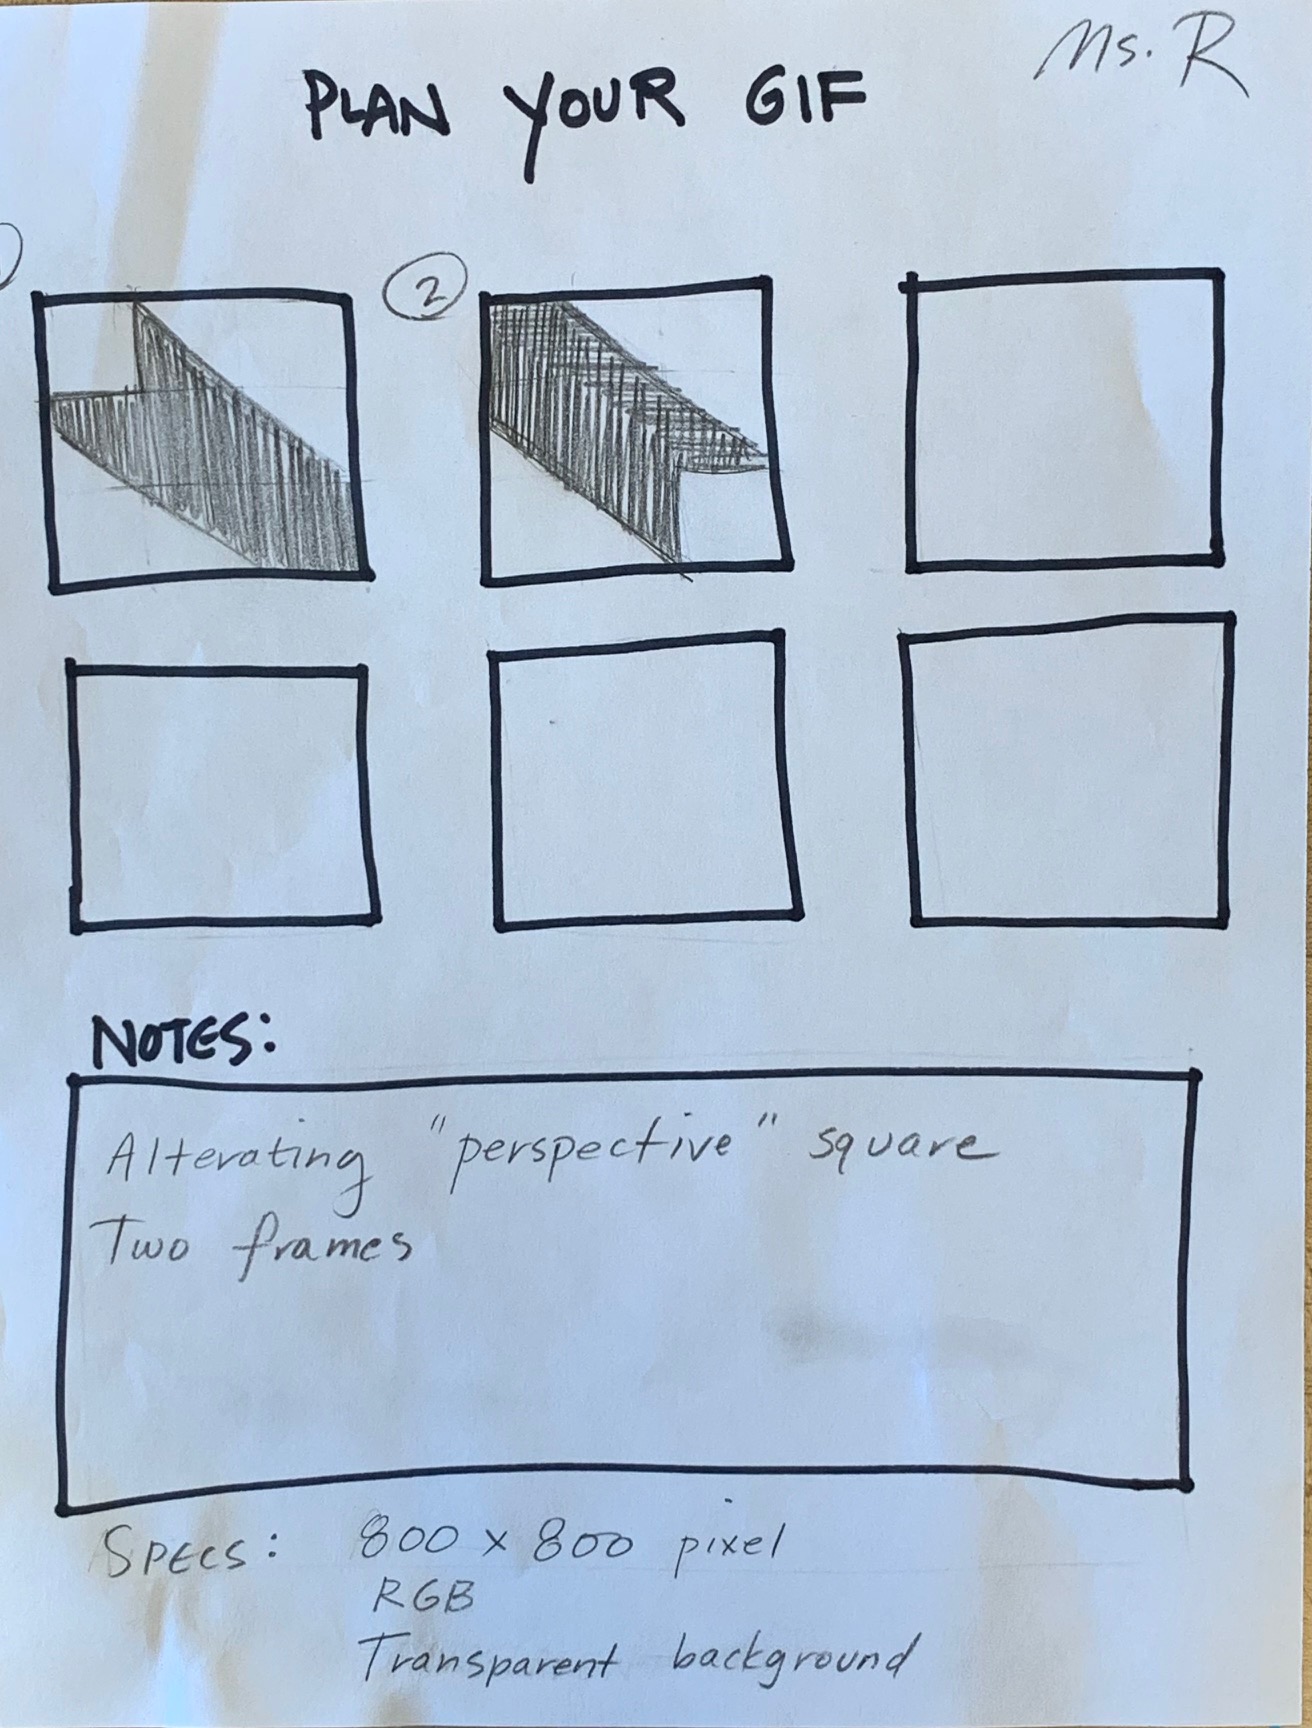 Ms. R
PLAN YOUR GIF
2
NOTES:
Alterating "perspective" square
Two frames
SPECS: 800 x 800 pixel
RGB
Transparent background